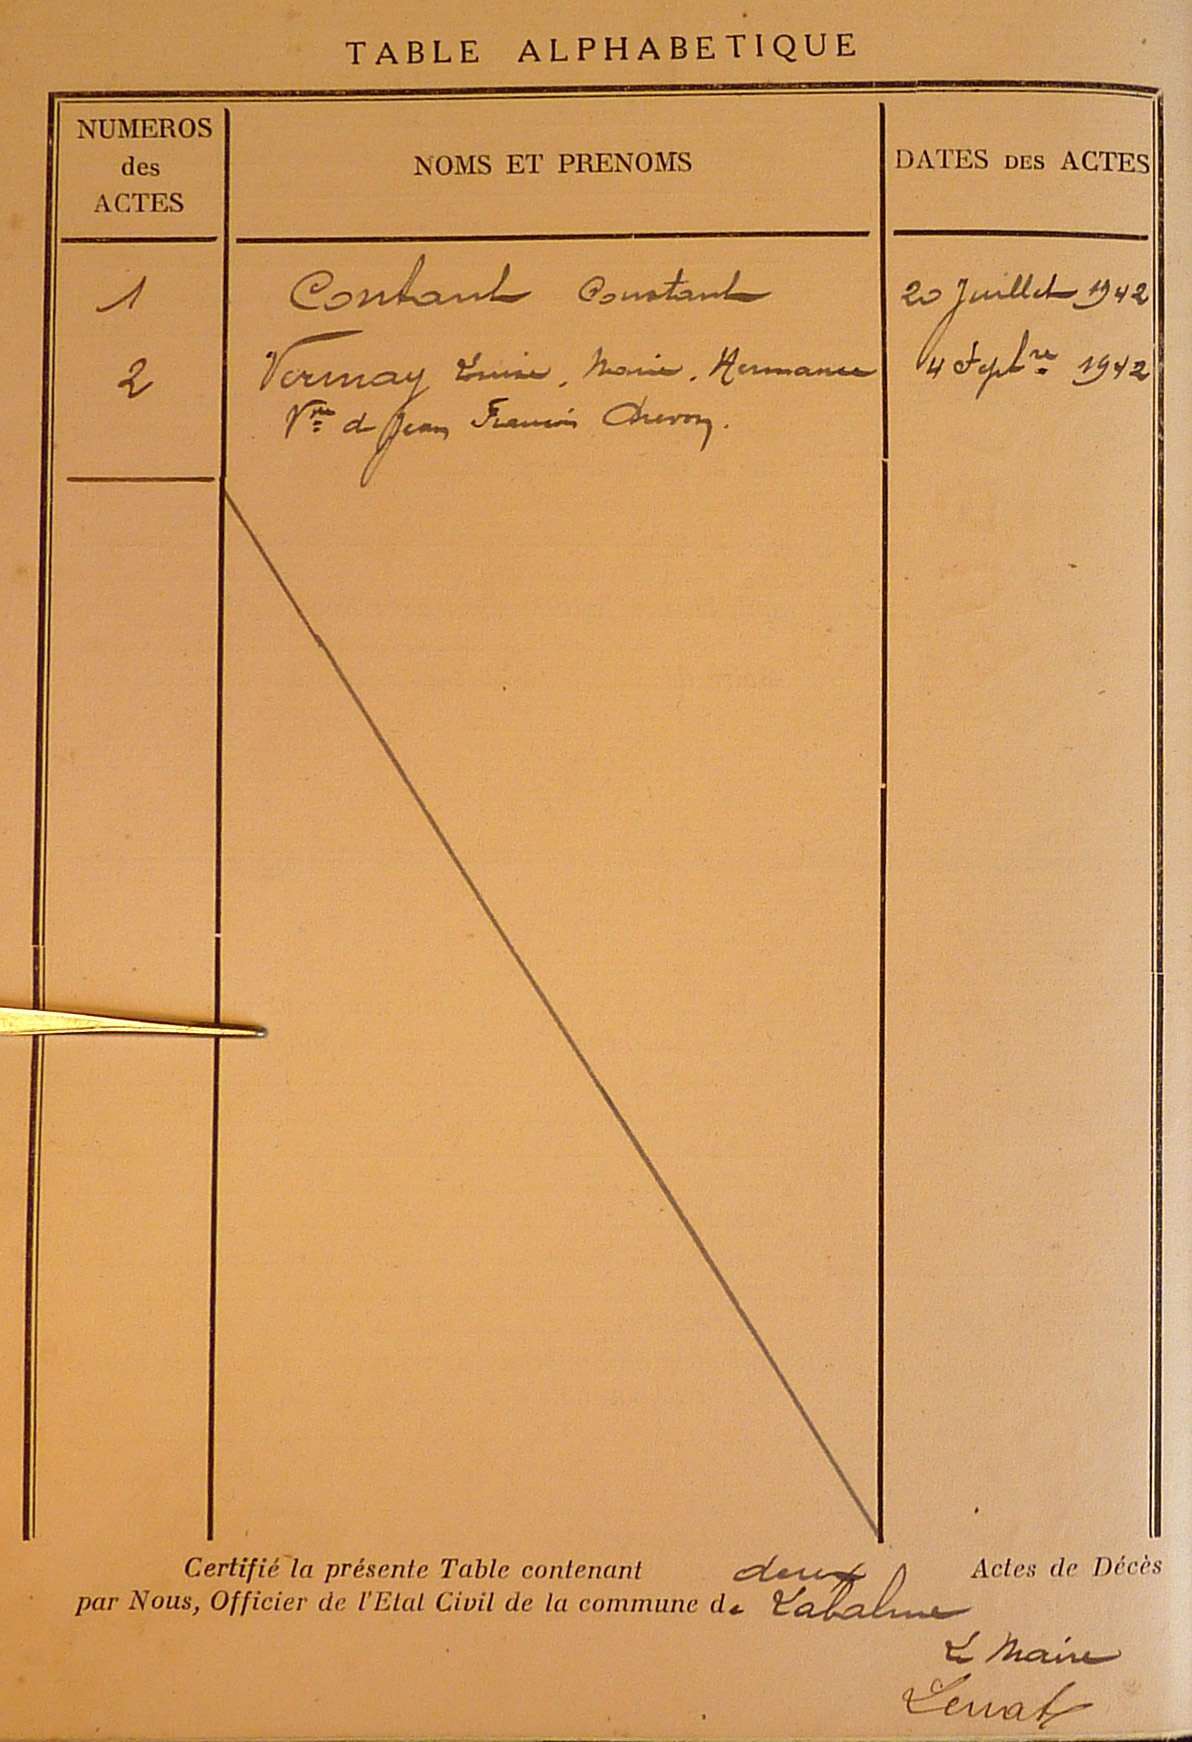 TABLE ALPHABETIQUE
NUMEROS
des
ACTES
NOMS ET PRENOMS
DATES DES ACTES
1 Contant Constant 20 Juillet 1942
2 Vermay Louise, Marie, Hermance 4 Sept.re 1942
Vve d Jean François Chevron.
Certifié la présente Table contenant deux Actes de Décès
par Nous, Officier de l'Etat Civil de la commune de Labalme
Le Maire